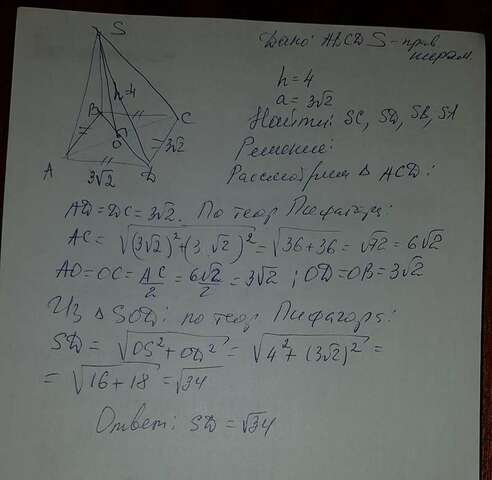 S
Дано: ABCD S - прав
пирам.
h = 4
a = 3√2
Найти: SC, SD, SB, SA
Решение:
Рассмотрим Δ ACD:
h=4
B
C
O
3√2
A
3√2
D
AD = DC = 3√2. По теор Пифагора:
AC = √((3√2)²+(3√2)²) = √(36+36) = √72 = 6√2
AO = OC = AC/2 = 6√2/2 = 3√2 ; OD = OB = 3√2
Из Δ SOD: по теор Пифагора:
SD = √(OS² + OD²) = √(4² + (3√2)²) =
= √(16 + 18) = √34
Ответ: SD = √34